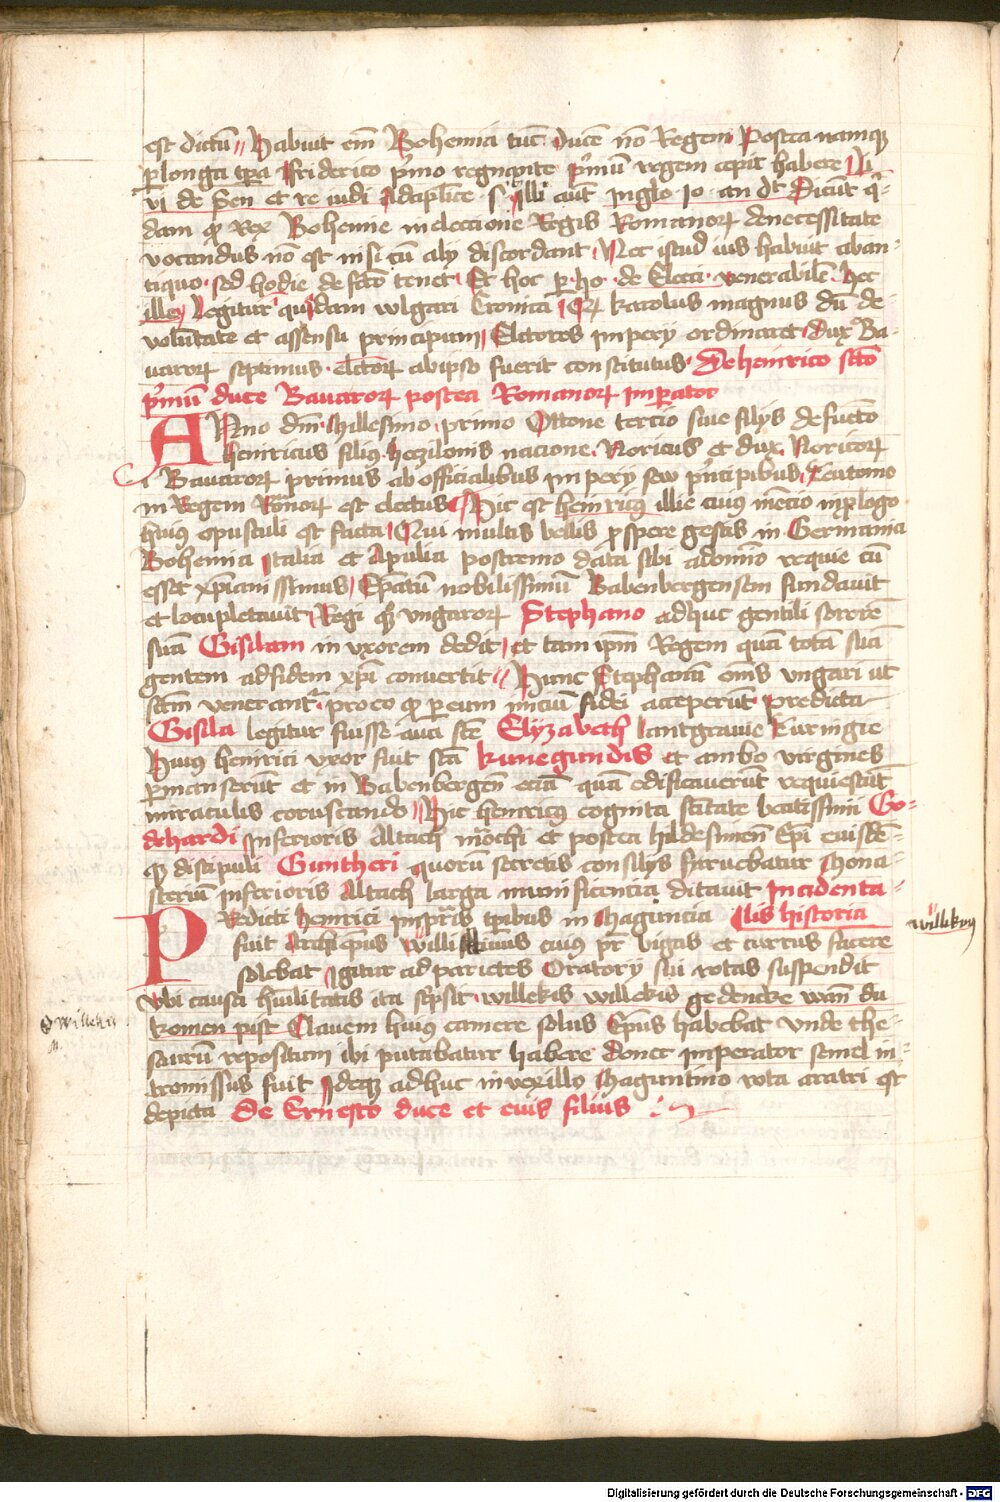 est dictū Habuit em̄ Bohemia tūc Ducē nō Regem Postea namqȝ
ꝑ longa tꝑa Friderico pͥmo regnante pͥmū regem cepit habere Vi
ri de Sen et re iudi Ad aplice s illi aut Inglo Io an dr̄ Dicūt qͥ-
dam ꝙ Rex Bohemie in eleccione Regis Romanoꝝ de necessitate
vocandus nō est nisi cū alij discordant Nec istud ius habuit ab an-
tiquo sed hodie de fcō tenet Et hoc ꝑ ho de Elect venerabilē Hec
ille Legitur qͥ dam wlgari Cronica Qꝙ karolus magnus dū de
volūtate et assensu principum Elctores imperij ordinaret dux Ba-
uaroꝝ septimus elctoꝝ ab ipso fuerit constitutus De heinrico scdo
pͥmū duce Bauaroꝝ postea Romanoꝝ Imꝑator
Anno dn̄i Millesimo primo Ottone tercio siue filijs defuncto
heinricus filius hezilonis nacione Noricus et dux Noricoꝝ
i Bauaroꝝ primus ab officialibus imperij seu pͥncipibus Teutonie
in Regem Romoꝝ est electus Hic est heinricus ille cuius mēcio in plogo
huius opusculi est facta Qui multis bellis ꝓspere gestis in Germania
Bohemia Italia et Apulia postremo data sibi a domīo requie cū
esset xp̄ianissimus Ep̄atū nobilissimū Babenbergensem fundauit
et locupletauit Regi qȝ vngaroꝝ Stephano adhuc gentili sororē
suā Gisilam in vxorem dedit et tam ip̄m Regem quā totā suā
gentem ad fidem xp̄i conuertit Hunc Stephanū om̄s vngari ut
scm̄ venerantͬ pro eo ꝙ ꝑ eum iniciū fidei acceperūt Predicta
Gisila legitur fuisse auia scē Elyzabeth lantgrauie Turingie
Huius heinrici vxor fuit scā kunegundis et ambo virgines
ꝑmanserūt et in Babenbergēn eciā quā edificauerūt requiescūt
miraculis coruscando Hic heinricus cognita scītate beatissimi Go-
dehardi inferioris Altach mōchi et postea hildesimen Ep̄i eiusde-
qȝ discipuli Guntheri quorū secretis consilijs fruebatur Mona-
steriū inferioris Altach larga munificencia ditauit Incidenta-
Predicti heinrici impr̄is tꝑibus in Maguncia lis historia
fuit Archiep̄us Willi cuius pr̄ bigas et currus facere
solebat Igitur ad parietes Oratorij sui rotas suspendit
Vbi causa hūilitatis ita sc̄psit willekis willekis gedencke wan̄ du
komen pist Clauem huius camere solus Ep̄us habebat Vnde the-
saurū repositum ibi putabatur habere donec imperator semel in-
tromissus fuit Ideqȝ adhuc in vexillo Maguntino rota aratri est
depicta De Ernesto duce et eius filius
willekus
Willekis